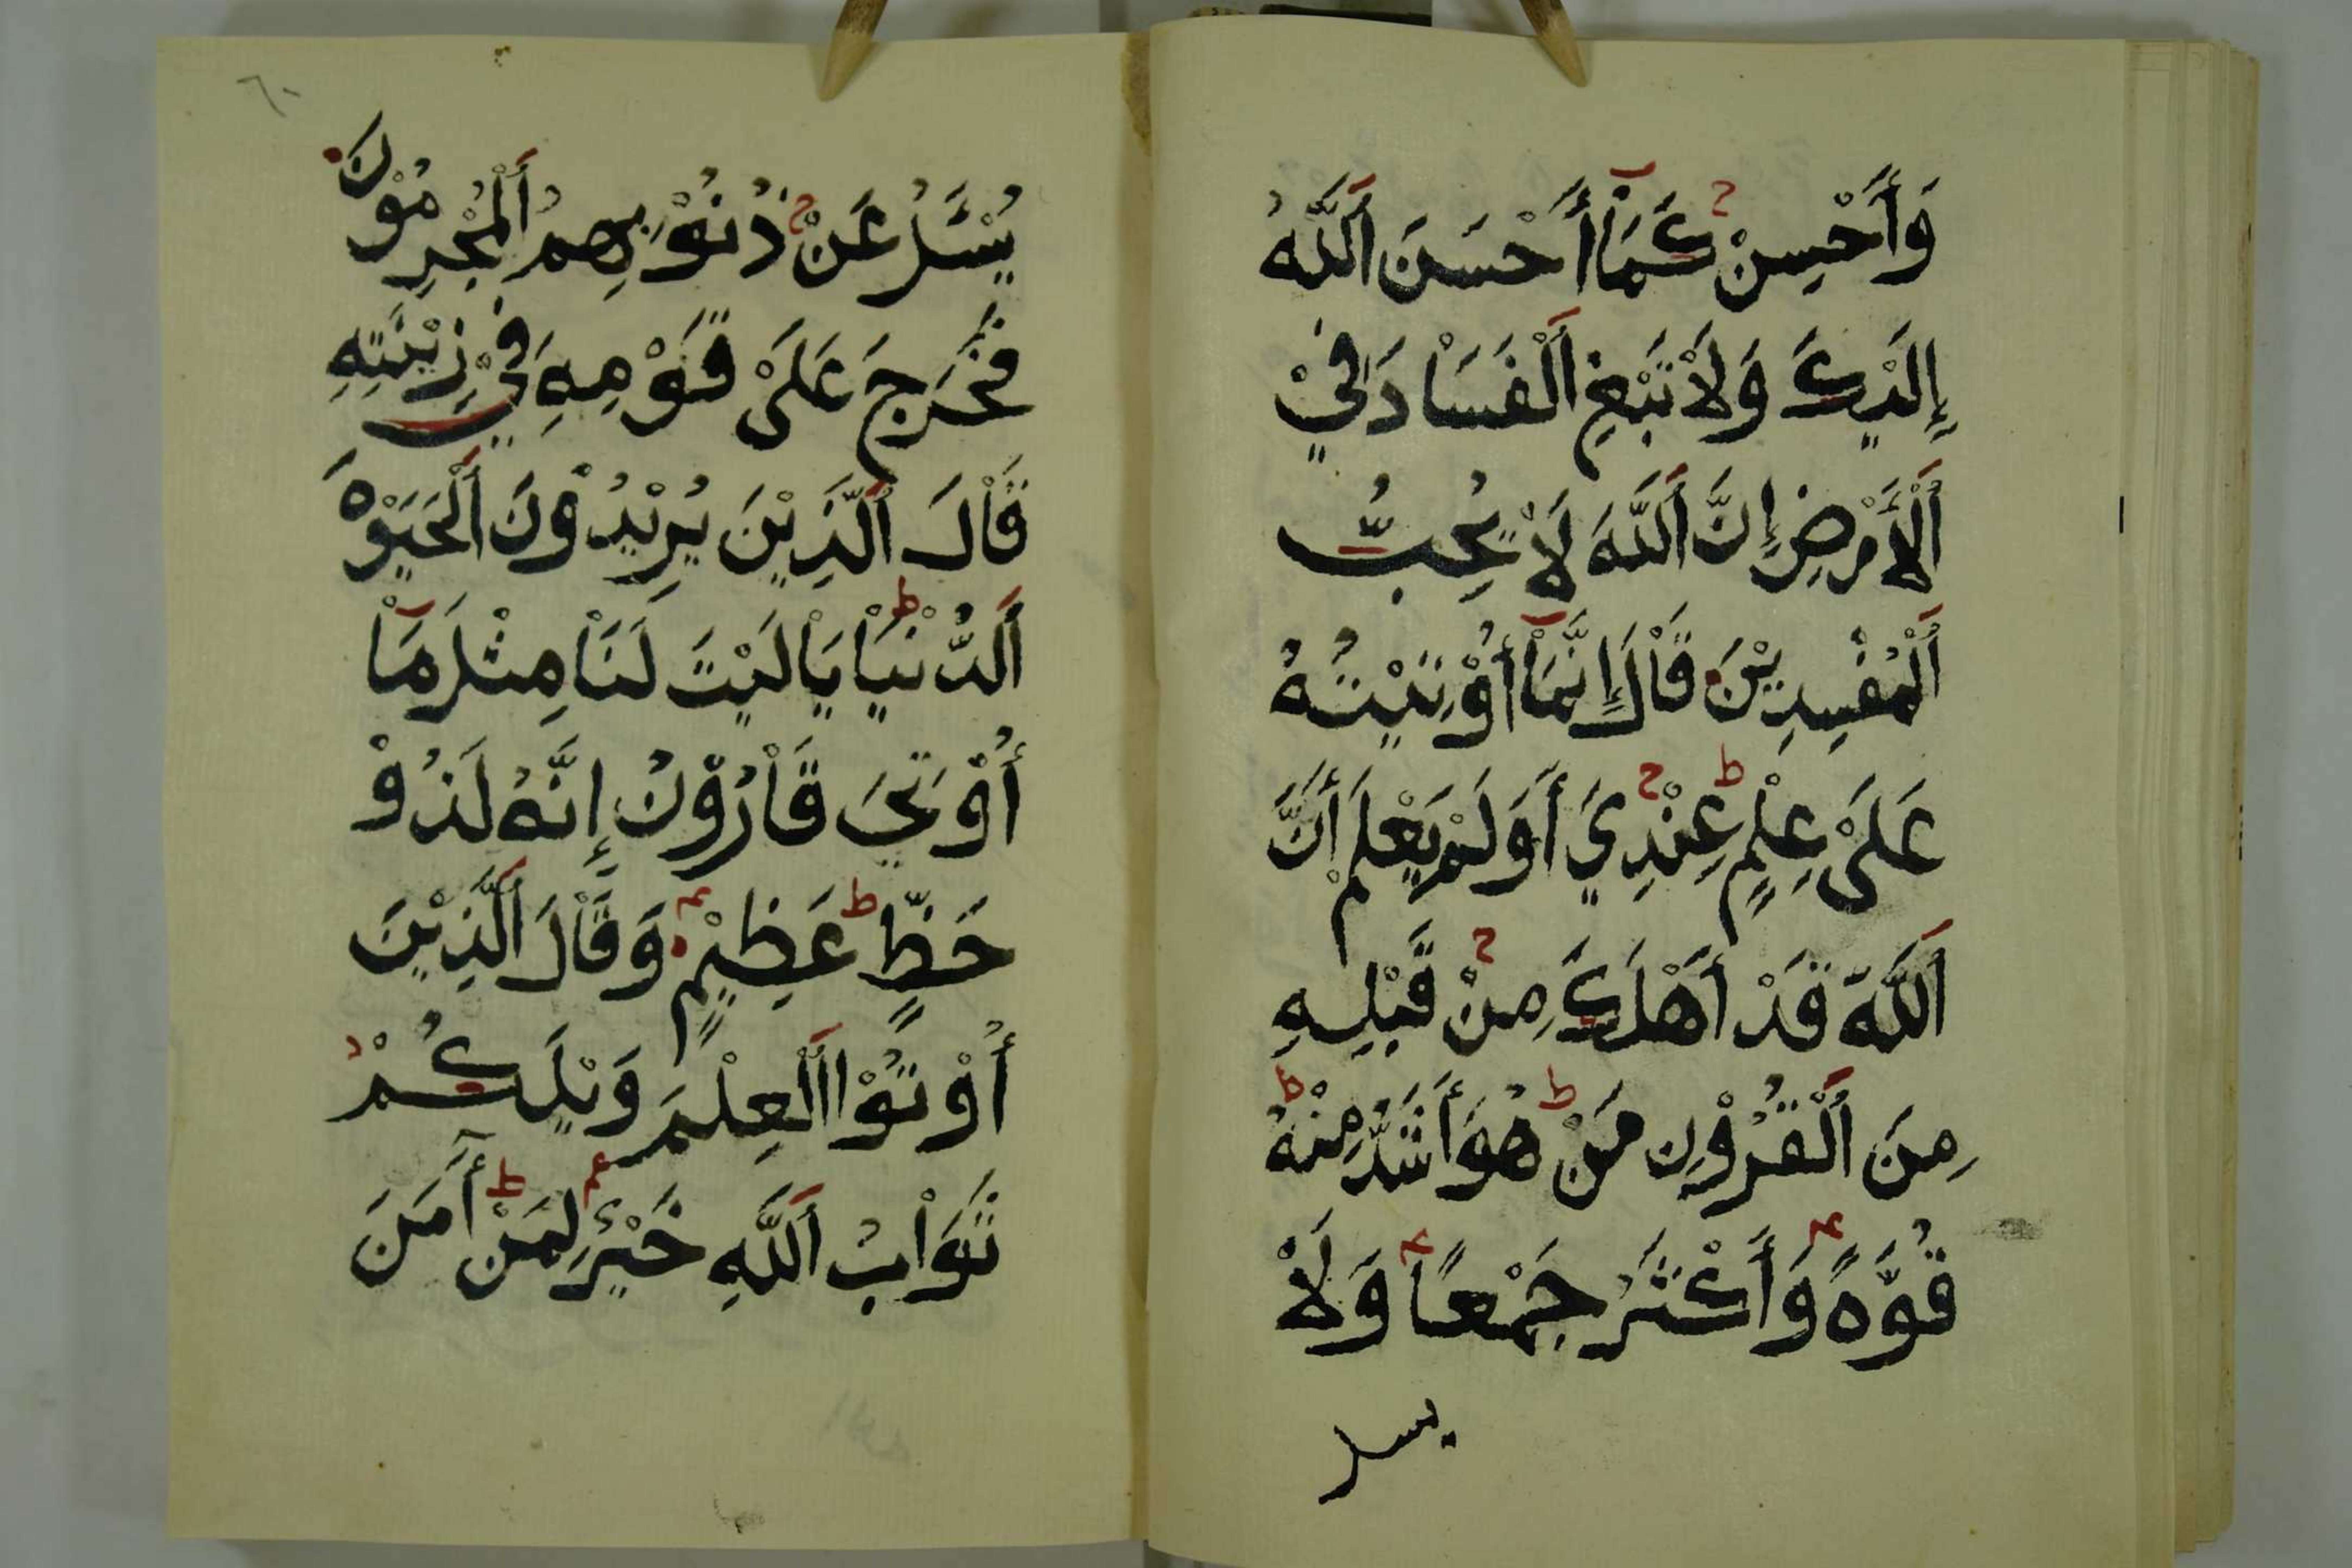 وَأَحْسِنْ كَمَاْ أَحْسَنَ اَللَّهُ
إِلَيْكَ وَلَاْ تَبْغِ اَلْفَسَاْدَ فِيْ
اَلْأَرْضِ إِنَّ اَللَّهَ لَاْ يُحِبُّ
اَلْمُفْسِدِيْنَ قَاْلَ إِنَّمَاْ أُوْتِيْتُهُ
عَلَىْ عِلْمٍ عِنْدِيْ أَوَلَمْ يَعْلَمْ أَنَّ
اَللَّهَ قَدْ أَهْلَكَ مِنْ قَبْلِهِ
مِنَ اَلْقُرُوْنِ مَنْ هُوَ أَشَدُّ مِنْهُ
قُوَّةً وَأَكْثَرُ جَمْعًا وَلَاْ
يسل
٦٠
يُسْئَلُ عَنْ ذُنُوْبِهِمُ اَلْمُجْرِمُوْنَ
فَخَرَجَ عَلَىْ قَوْمِهِ فِيْ زِيْنَتِهِ
قَاْلَ اَلَّذِيْنَ يُرِيْدُوْنَ اَلْحَيَوْةَ
اَلدُّنْيَاْ يَاْ لَيْتَ لَنَاْ مِثْلَ مَاْ
أُوْتِيَ قَاْرُوْنُ إِنَّهُ لَذُوْ
حَظٍّ عَظِيْمٍ وَقَاْلَ اَلَّذِيْنَ
أُوْتُوْا اَلْعِلْمَ وَيْلَكُمْ
ثَوَاْبُ اَللَّهِ خَيْرٌ لِمَنْ أٓمَنَ